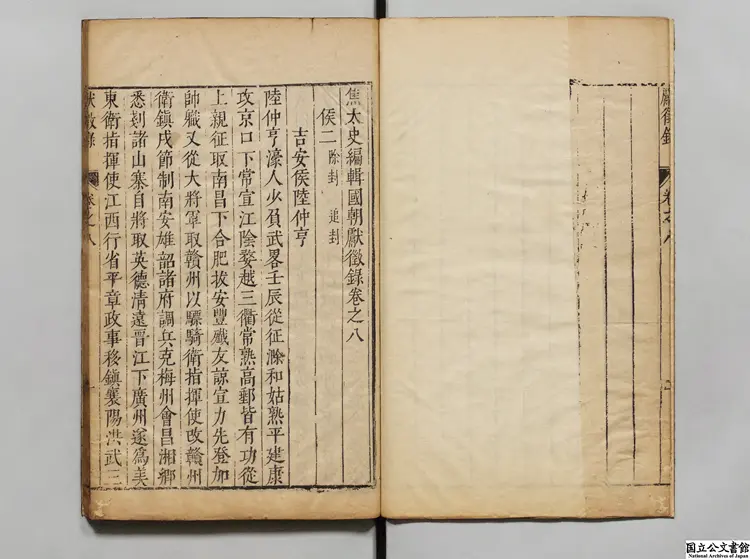 焦太史編輯國朝獻徵錄卷之八
侯二 除封 追封
吉安侯陸仲亨
陸仲亨濠人少負武畧壬辰從征滁和姑熟平建康
攻京口下常宣江陰婺越三衢常熟高郵皆有功從
上親征取南昌下合肥拔安豐殲友諒宣力先登加
帥職又從大將軍取贛州以驃騎衛指揮使改贛州
衛鎮戍節制南安雄韶諸府調兵克梅州會昌湘鄉
悉剗諸山寨自將取英德清遠晉江下廣州遂為美
東衛指揮使江西行省平章政事移鎮襄陽洪武三
獻徵錄 卷之八
獻徵錄 卷之八
国立公文書館
National Archives of Japan